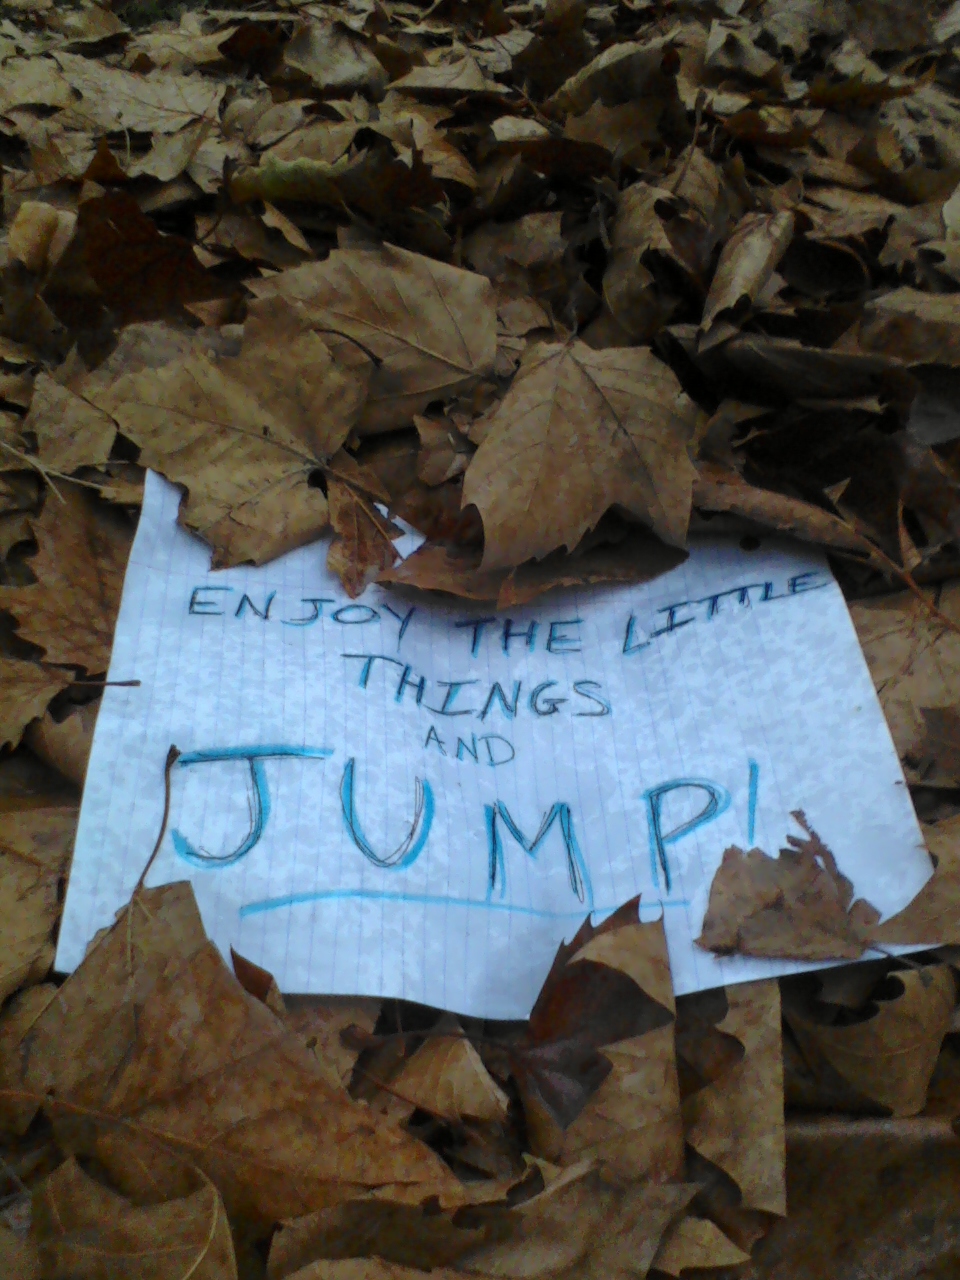 ENJOY THE LITTLE
THINGS
AND
JUMP!